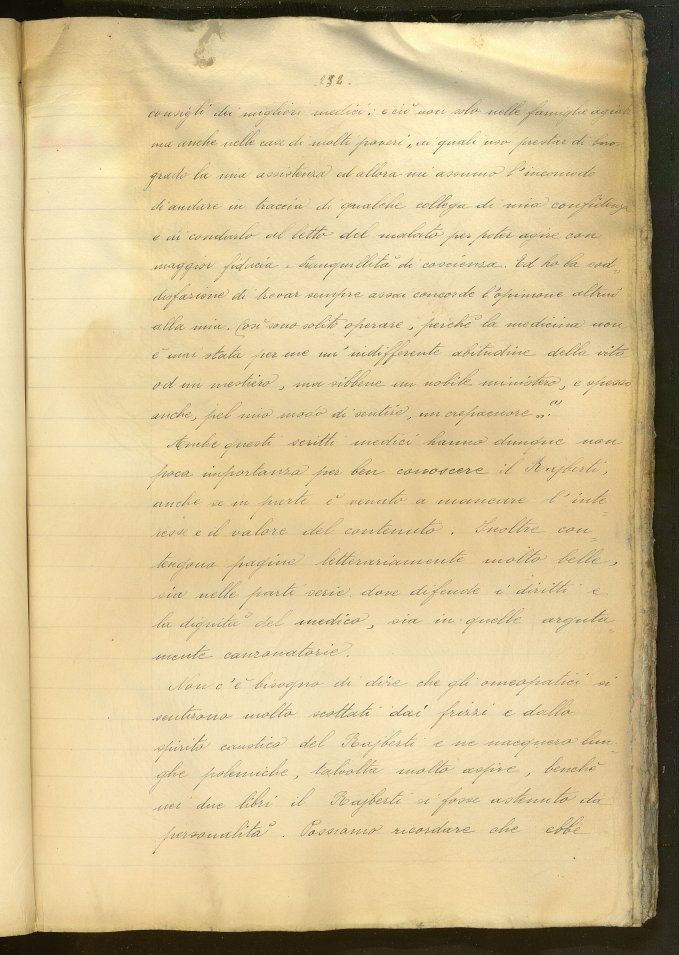 232.
consigli dei migliori medici; e ciò non solo nelle famiglie agiate
ma anche nelle case di molti poveri, ai quali uso prestar di buon
grado la mia assistenza ed allora mi assumo l'incomodo
di andare in traccia di qualche collega di mia confidenza
e di condurlo al letto del malato per poter agire con
maggior fiducia e tranquillità di coscienza. Ed ho la sod-
disfazione di trovar sempre assai concorde l'opinione altrui
alla mia. Così sono solito operare, perchè la medicina non
è mai stata per me un'indifferente abitudine della vita
od un mestiero, ma sibbene un nobile ministero, e spesso
anche, pel mio modo di sentire, un crepacuore „.
Anche questi scritti medici hanno dunque non
poca importanza per ben conoscere il Rajberti,
anche se in parte è venuto a mancare l'inte-
resse e il valore del contenuto. Inoltre con-
tengono pagine letterariamente molto belle,
sia nelle parti serie dove difende i diritti e
la dignità del medico, sia in quelle arguta-
mente canzonatorie.
Non c'è bisogno di dire che gli omeopatici si
sentirono molto scottati dai frizzi e dallo
spirito caustico del Rajberti e ne nacquero lun-
ghe polemiche, talvolta molto aspre, benchè
nei due libri il Rajberti si fosse astenuto da
personalità. Possiamo ricordare che ebbe